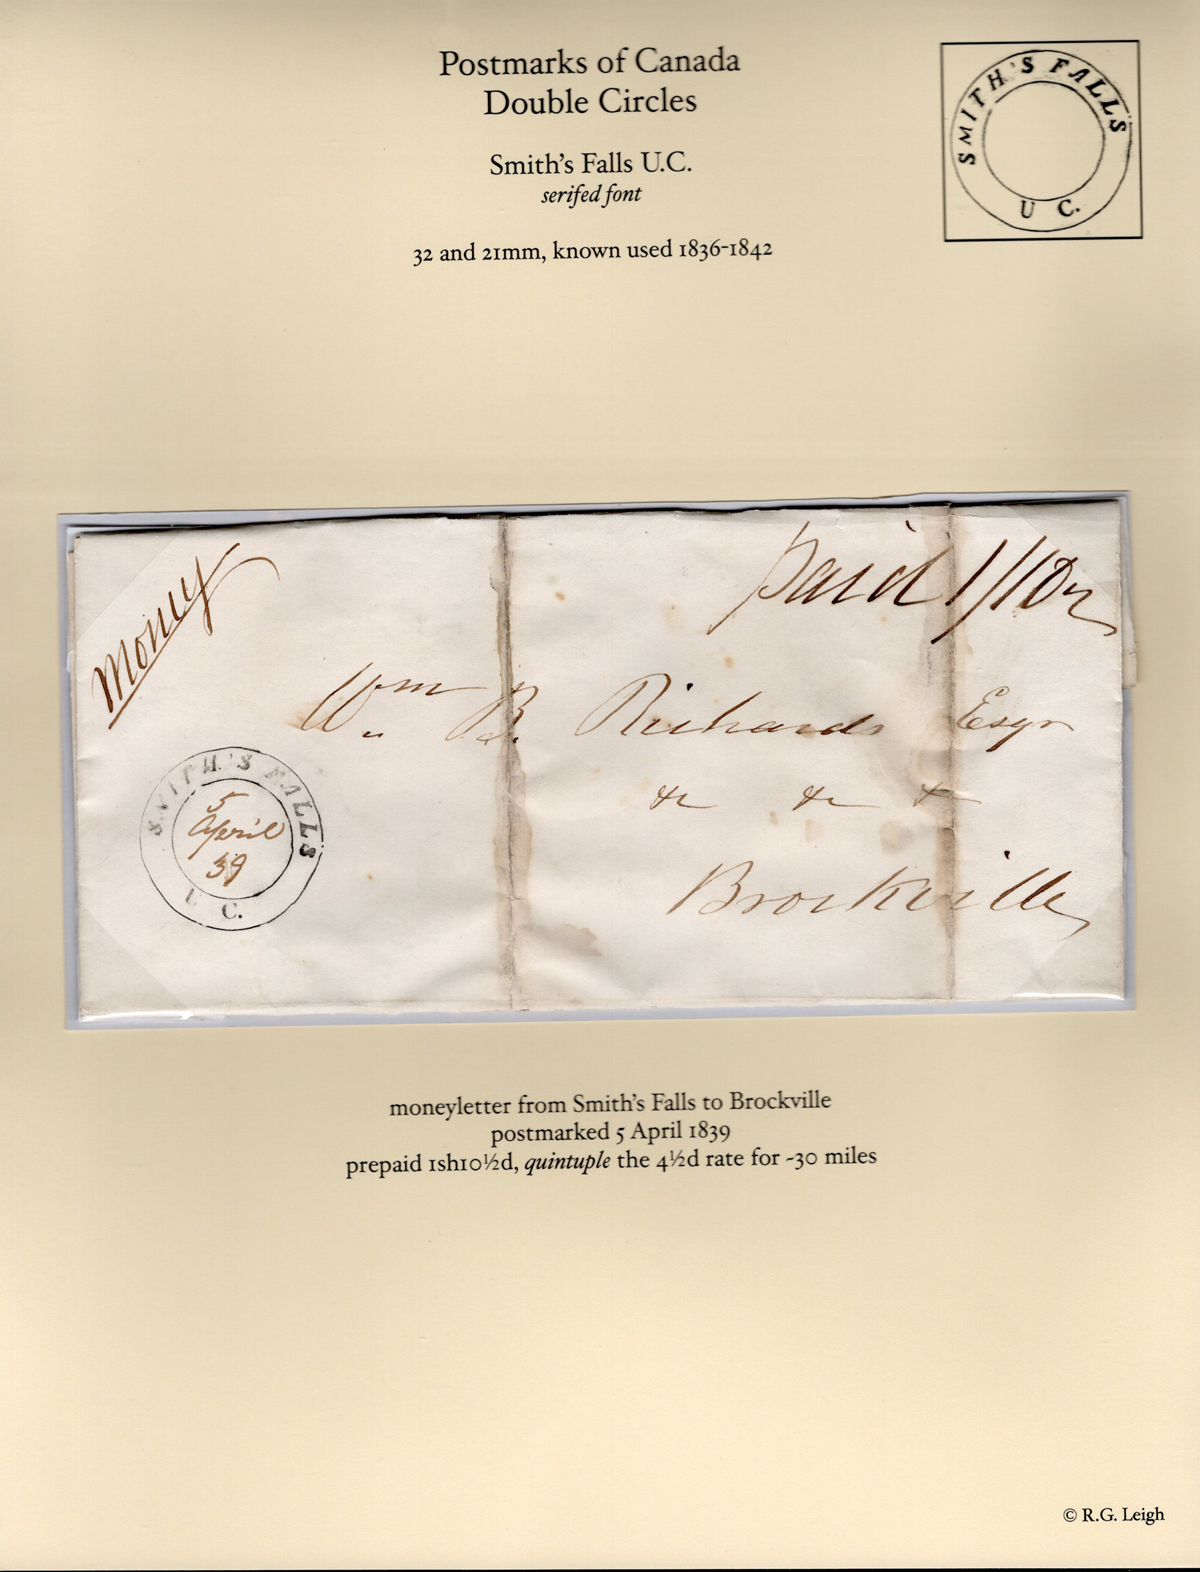 Postmarks of Canada
Double Circles
SMITH'S FALLS
U C.
Smith's Falls U.C.
serifed font
32 and 21mm, known used 1836-1842
Money
Paid 1/10½
Wm B. Richards Esqr
&c &c &c
Brockville
SMITH'S FALLS
5
April
39
U C.
moneyletter from Smith's Falls to Brockville
postmarked 5 April 1839
prepaid 1sh10½d, quintuple the 4½d rate for -30 miles
© R.G. Leigh